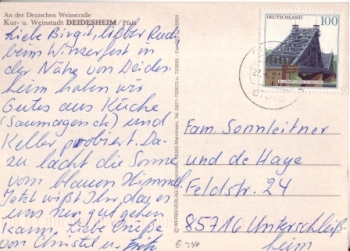 An der Deutschen Weinstraße
Kur- u. Weinstadt DEIDESHEIM/Pfalz
Liebe Birgit, lieber Rudi,
beim Winzerfest in
der Nähe von Deides
heim haben wir
Gutes aus Küche
(Saumagen etc) und
Keller probiert. Da-
zu lacht die Sonne
vom blauen Himmel.
Jetzt wißt Ihr, daß es
uns nur gut gehen
kann. Liebe Grüße
von Christel u.
DEUTSCHLAND
100
Fam. Sonnleitner
und de Haye
Feldstr. 24
85716 Unterschleiß-
heim